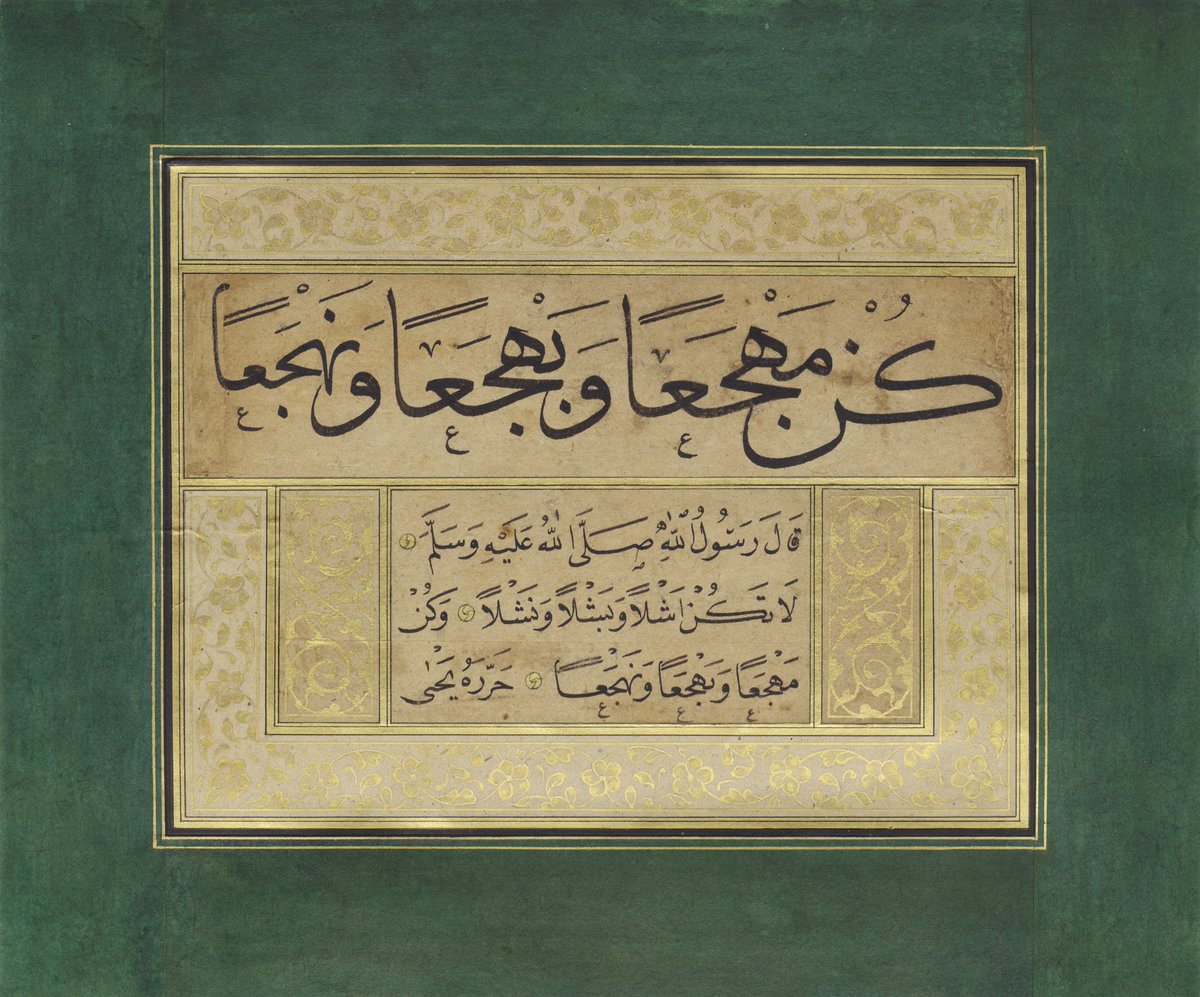 كُنْ مَهْجَعًا وَبَهْجَعًا وَنَهْجَعًا
قَالَ رَسُولُ اللهِ صَلَّى اللهُ عَلَيْهِ وَسَلَّمَ
لَا تَكُنْ اَشْلًا وَبَشْلًا وَنَشْلًا وَكُنْ
مَهْجَعًا وَبَهْجَعًا وَنَهْجَعًا حَرَّرَهُ يَحْيٰى